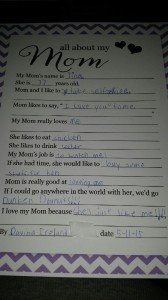 all about my
Mom
My Mom's name is
She is 37 years old.
Mom and I like to take selfies
Mom likes to say, "I love you" to me
My Mom really loves me
She likes to eat chicken
She likes to drink water
My Mom's job is to watch me!
If she had time, she would like to buy some
stuff for her
Mom is really good at loving me
If I could go anywhere in the world with her, we'd go
Dunkin Donuts!!
I love my Mom because She's just like me!!
By Davina Ireland date 5-11-15